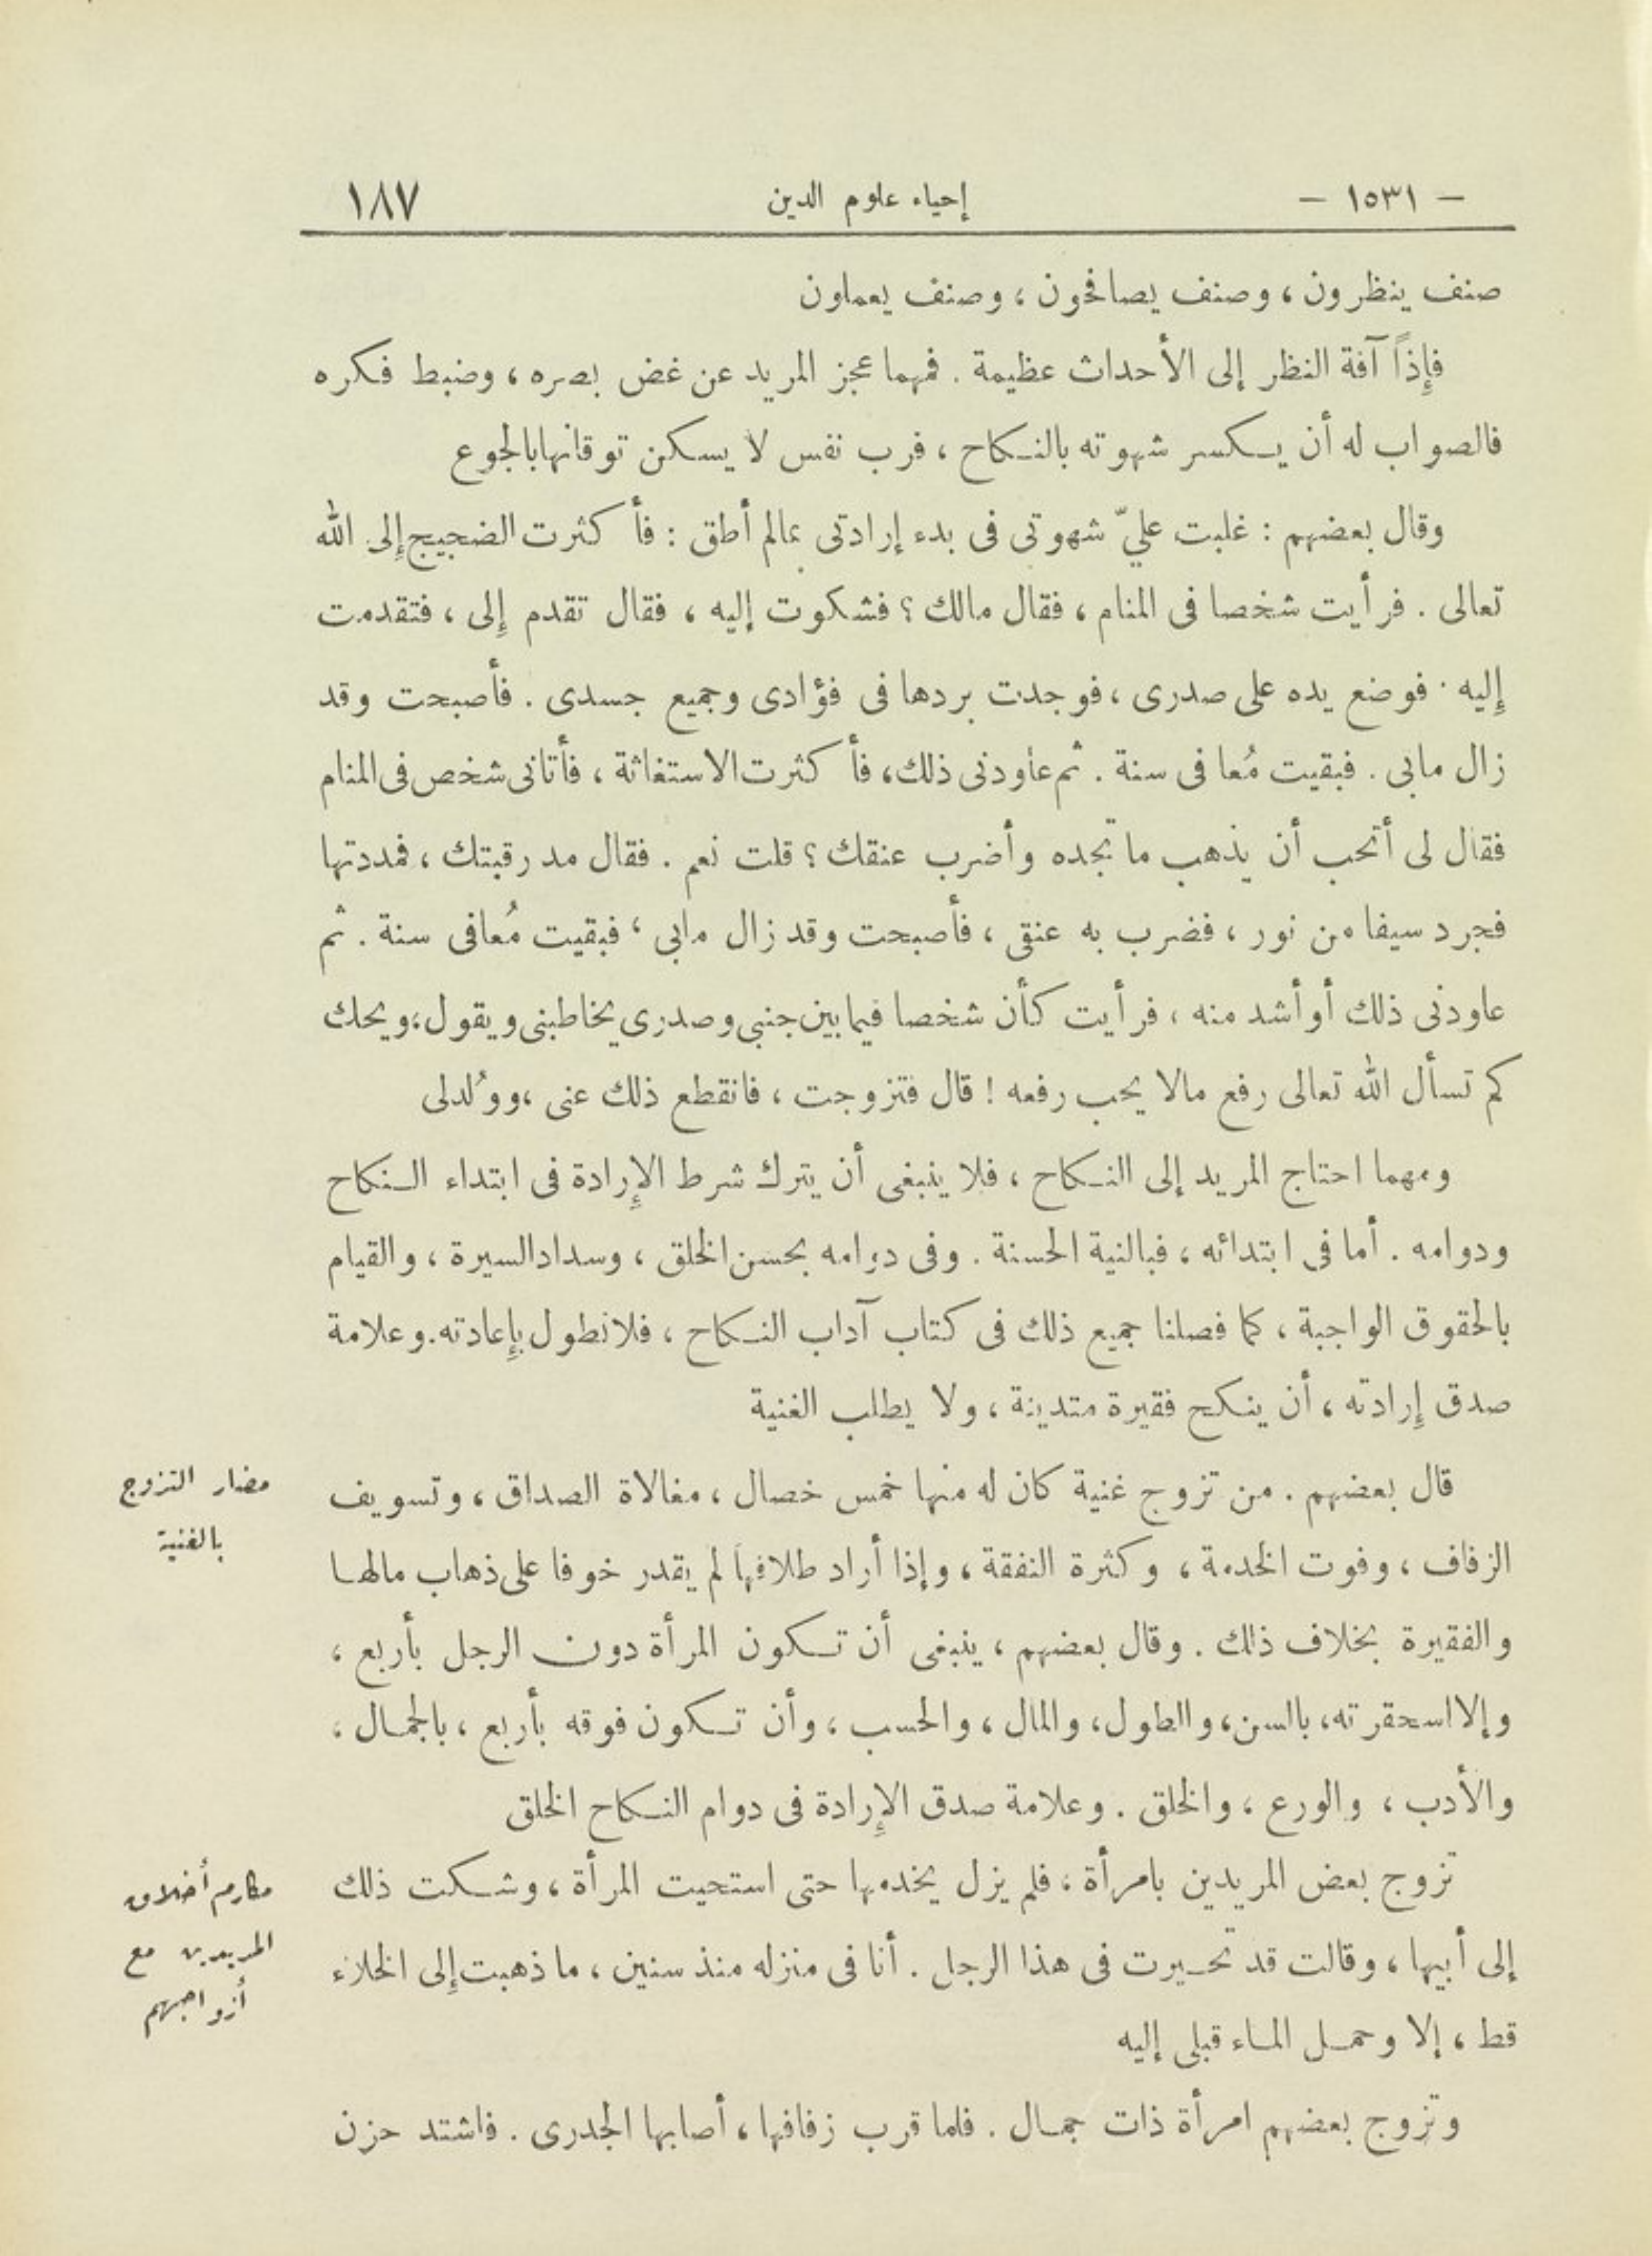 – ١٥٣١ –
إحياء علوم الدين
١٨٧
صنف ينظرون ، وصنف يصافحون ، وصنف يعملون
فإِذاً آفة النظر إلى الأحداث عظيمة . فمهما عجز المريد عن غض بصره ، وضبط فكره
فالصواب له أن يكسر شهوته بالنكاح ، فرب نفس لا يسكن توقانها بالجوع
وقال بعضهم : غلبت عليّ شهوتى فى بدء إرادتى بمالم أطق : فأكثرت الضجيج إلى الله
تعالى . فرأيت شخصا فى المنام ، فقال مالك ؟ فشكوت إليه ، فقال تقدم إلى ، فتقدمت
إليه . فوضع يده على صدرى ، فوجدت بردها فى فؤادى وجميع جسدى . فأصبحت وقد
زال مابى . فبقيت مُعافى سنة . ثم عاودنى ذلك ، فأكثرت الاستغاثة ، فأتانى شخص فى المنام
فقال لى أتحب أن يذهب ما تجده وأضرب عنقك ؟ قلت نعم . فقال مد رقبتك ، فمددتها
فجرد سيفا من نور ، فضرب به عنقى ، فأصبحت وقد زال مابى ، فبقيت مُعافى سنة . ثم
عاودنى ذلك أو أشد منه ، فرأيت كأن شخصا فيما بين جنبى وصدرى يخاطبنى ويقول ؛ ويحك
كم تسأل الله تعالى رفع مالا يحب رفعه ! قال فتزوجت ، فانقطع ذلك عنى ، ووُلدلى
ومهما احتاج المريد إلى النكاح ، فلا ينبغى أن يترك شرط الإرادة فى ابتداء النكاح
ودوامه . أما فى ابتدائه ، فبالنية الحسنة . وفى دوامه بحسن الخلق ، وسداد السيرة ، والقيام
بالحقوق الواجبة ، كما فصلنا جميع ذلك فى كتاب آداب النكاح ، فلا نطول بإعادته . وعلامة
صدق إرادته ، أن ينكح فقيرة متدينة ، ولا يطلب الغنية
مضار التزوج
بالغنية
قال بعضهم . من تزوج غنية كان له منها خمس خصال ، مغالاة الصداق ، وتسويف
الزفاف ، وفوت الخدمة ، وكثرة النفقة ، وإذا أراد طلاقها لم يقدر خوفا على ذهاب مالها
والفقيرة بخلاف ذلك . وقال بعضهم ، ينبغى أن تكون المرأة دون الرجل بأربع ،
وإلا اسحقرته ، بالسن ، والطول ، والمال ، والحسب ، وأن تكون فوقه بأربع ، بالجمال ،
والأدب ، والورع ، والخلق . وعلامة صدق الإرادة فى دوام النكاح الخلق
مكارم أخلاق
المريدين مع
أزواجهم
تزوج بعض المريدين بامرأة ، فلم يزل يخدمها حتى استحيت المرأة ، وشكت ذلك
إلى أبيها ، وقالت قد تحيرت فى هذا الرجل . أنا فى منزله منذ سنين ، ما ذهبت إلى الخلاء
قط ، إلا وحمل الماء قبلى إليه
وتزوج بعضهم امرأة ذات جمال . فلما قرب زفافها ، أصابها الجدرى . فاشتد حزن